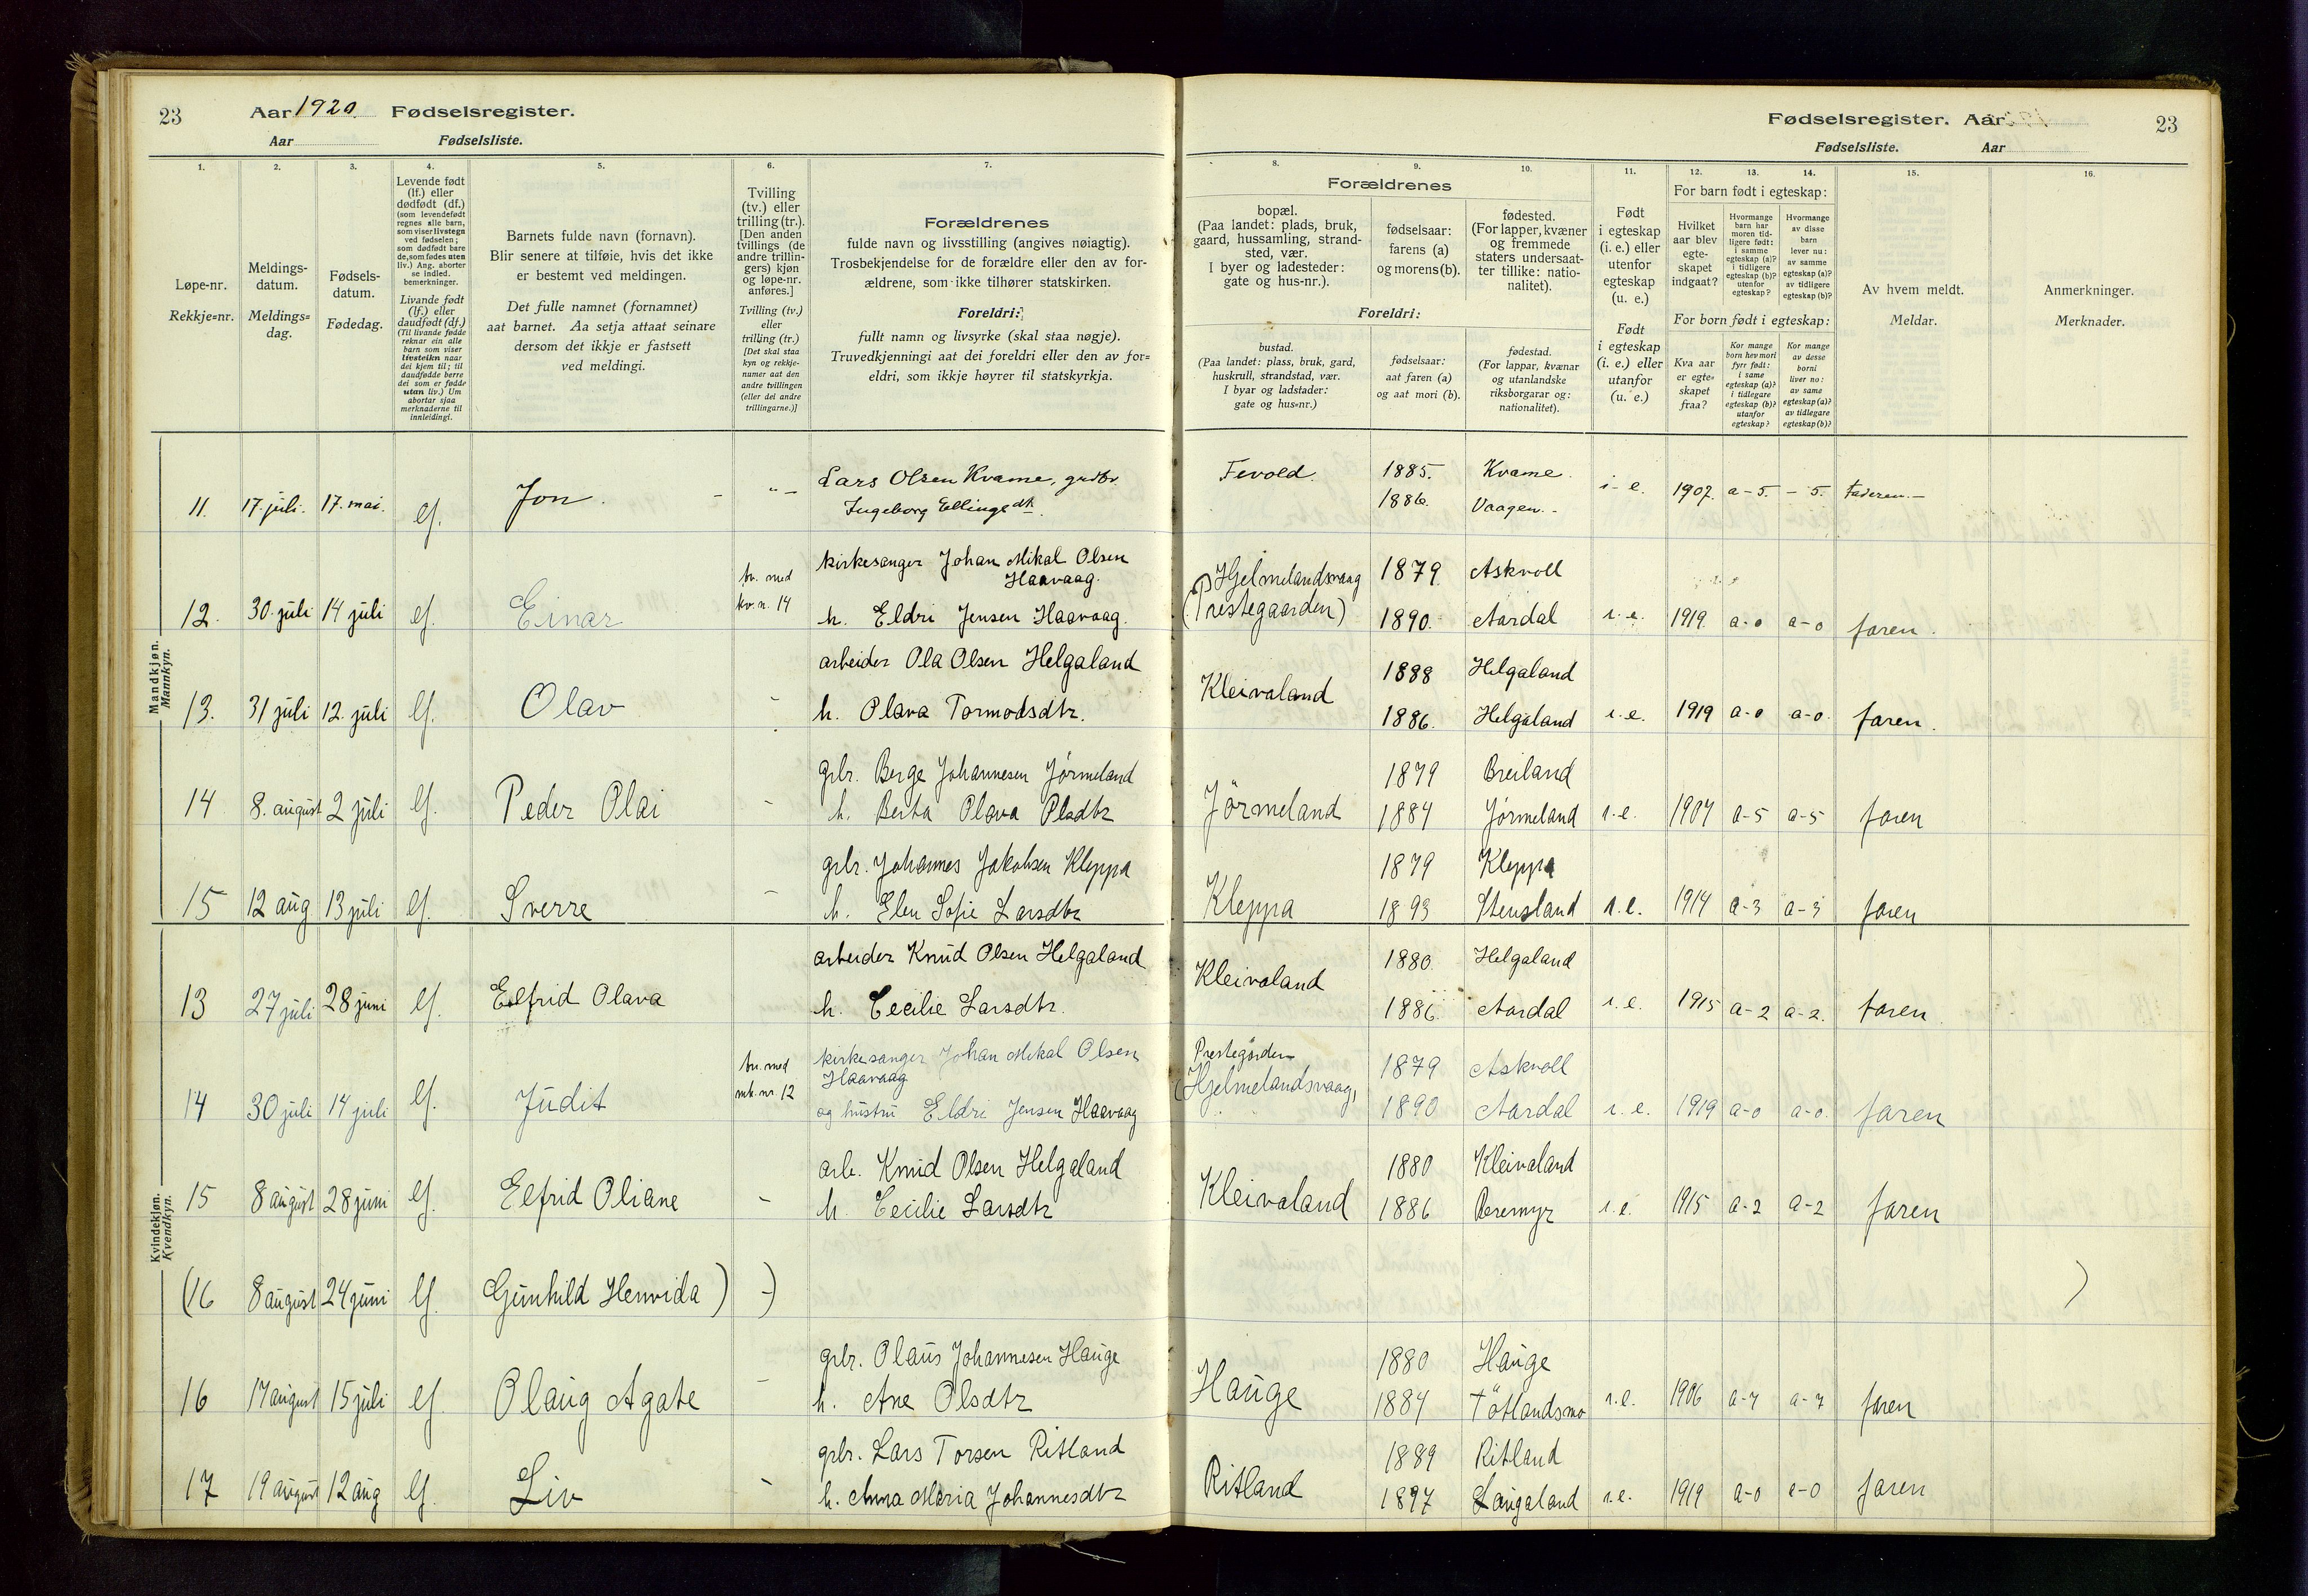 23 Aar 1920. Fødselsregister.
Aar Fødselsliste.
Fødselsregister. Aar 23
Fødselsliste. Aar
1. 2. 3. 4. 5. 6. 7. 8. 9. 10. 11. 12. 13. 14. 15. 16.
Løpe-nr.
Rekkje=nr.
Meldings-
datum.
Meldings=
dag.
Fødsels-
datum.
Fødedag.
Levende født
(lf.) eller
dødfødt (df.)
(som levendefødt
regnes alle barn,
som viser livstegn
ved fødselen;
som dødfødt bare
de, som fødes uten
liv.) Ang. aborter
se indled.
bemerkninger.
Livande født
(lf.) eller
daudfødt (df.)
(Til livande fødde
reknar ein alle
barn som viser
livsteikn naar
dei kjem til; til
daudfødde berre
dei som er fødde
utan liv.) Um
abortar sjaa
merknaderne til
innleidingi.
Barnets fulde navn (fornavn).
Blir senere at tilføie, hvis det ikke
er bestemt ved meldingen.
Det fulle namnet (fornamnet)
aat barnet. Aa setja attaat seinare
dersom det ikkje er fastsett
ved meldingi.
Tvilling
(tv.) eller
trilling (tr.).
[Den anden
tvillings (de
andre trillin-
gers) kjøn
og løpe-nr.
anføres.]
Tvilling (tv.)
eller
trilling (tr.)
[Det skal staa
kyn og rekkje-
numer aat den
andre tvillingen
(eller dei andre
trillingarne.)]
Forældrenes
fulde navn og livsstilling (angives nøiagtig).
Trosbekjendelse for de forældre eller den av for-
ældrene, som ikke tilhører statskirken.
Foreldri:
fullt namn og livsyrke (skal staa nøgje).
Truvedkjenningi aat dei foreldri eller den av for=
eldri, som ikkje høyrer til statskyrkja.
Forældrenes
bopæl.
(Paa landet: plads, bruk,
gaard, hussamling, strand-
sted, vær.
I byer og ladesteder:
gate og hus-nr.).
fødselsaar:
farens (a)
og morens (b).
fødested.
(For lapper, kvæner
og fremmede
staters undersaat-
ter tillike: natio-
nalitet).
Foreldri:
bustad.
(Paa landet: plass, bruk, gard,
huskrull, strandstad, vær.
I byar og ladstader:
gate og hus=nr.)
fødselsaar:
aat faren (a)
og aat mori (b).
fødestad.
(For lappar, kvænar
og utanlandske
riksborgarar og:
nationalitet).
Født
i egteskap
(i. e.) eller
utenfor
egteskap
(u. e.)
Født
i egteskap
(i. e.) eller
utanfor
(u. e.)
For barn født i egteskap:
Hvilket
aar blev
egte-
skapet
indgaat?
Hvormange
barn har
moren tid-
ligere født:
i samme
egteskap (a)?
i tidligere
egteskap (b)?
utenfor
egteskap?
Hvormange
av disse
barn
lever nu:
av samme
egteskap (a)?
av tidligere
egteskap (b)?
For born født i egteskap:
Kva aar
er egte=
skapet
fraa?
Kor mange
born hev mori
fyrr født:
i same
egteskap (a)?
i tidlegare
egteskap (b)?
utanfor
egteskap?
Kor mange
av desse
borni
liver no:
av same
egteskap (a)?
av tidlegare
egteskap (b)?
Av hvem meldt.
Meldar.
Anmerkninger.
Merknader.
Mandkjøn.
Mannkyn.
11. 17. juli. 17. mai. lf. Jon. Lars Olsen Kvame, grdbr. Fevold. 1885. Kvame. i. e. 1907. a-5. - 5. Faderen.-
Ingeborg Ellingsdtr. 1886. Vaagen.-
12. 30. juli 14 juli lf. Einar tv. med kv. n. 14 kirkesanger Johan Mikal Olsen Haavaag. Hjelmelandsvaag 1879 Askvoll
h. Eldri Jensen Haavaag. (Prestegaarden) 1890. Aardal i. e. 1919 a-0 a-0 faren.
13. 31 juli 12. juli lf. Olav - arbeider Ola Olsen Helgaland Kleivaland 1888 Helgaland
h. Olava Tormodsdtr. 1886. Helgaland i. e. 1919 a-0 a-0. faren.
14 8. august 2 juli lf. Peder Olai - grbr. Berge Johannesen Jørmeland Jörmeland 1879 Breiland
h. Berta Olava Olsdtr 1884 Jørmeland i. e. 1904 a-5 a-5 faren
15 12 aug 13 juli lf. Sverre - grbr. Johannes Jakobsen Kleppa Kleppa 1879 Kleppa
h. Elen Sofie Larsdtr 1893 Stensland i. e. 1914 a-3 a-3 faren
Kvindekjøn.
Kvendkyn.
13 27 juli 28 juni lf. Elfrid Olava arbeider Knud Olsen Helgaland Kleivaland 1880. Helgaland
h. Cecilie Larsdtr. 1886. Aardal i. e. 1915 a-2 a-2. faren.
14 30 juli 14 juli lf. Judit tv. med mk. nr. 12 kirkesanger Johan Mikal Olsen Haavaag Prestegården 1879 Askvoll
og hustru Eldri Jensen Haavaag (Hjelmelandsvaag) 1890 Aardal i. e. 1919 a-0 a-0. faren
15 8 august 28 juni lf. Elfrid Oliane - arb. Knud Olsen Helgaland Kleivaland 1880 Kleivaland
h. Cecilie Larsdtr 1886 i. e. 1915 a-2 a-2 faren
(16 8 august 24 juni lf. Gunhild Henvida) -) )
16 17 august 15 juli lf. Olaug Agate - grbr. Olaus Johannesen Hauge Hauge 1880 Hauge
h. Ane Olsdtr 1884 Tötlandsmo i. e. 1906 a-7 a-7 faren
17 19 august 12 aug lf. Liv - grbr. Lars Torsen Ritland Ritland 1889 Ritland
h. Anna Maria Johannesdtr 1897 Laugaland i. e. 1919 a-0 a-0 faren